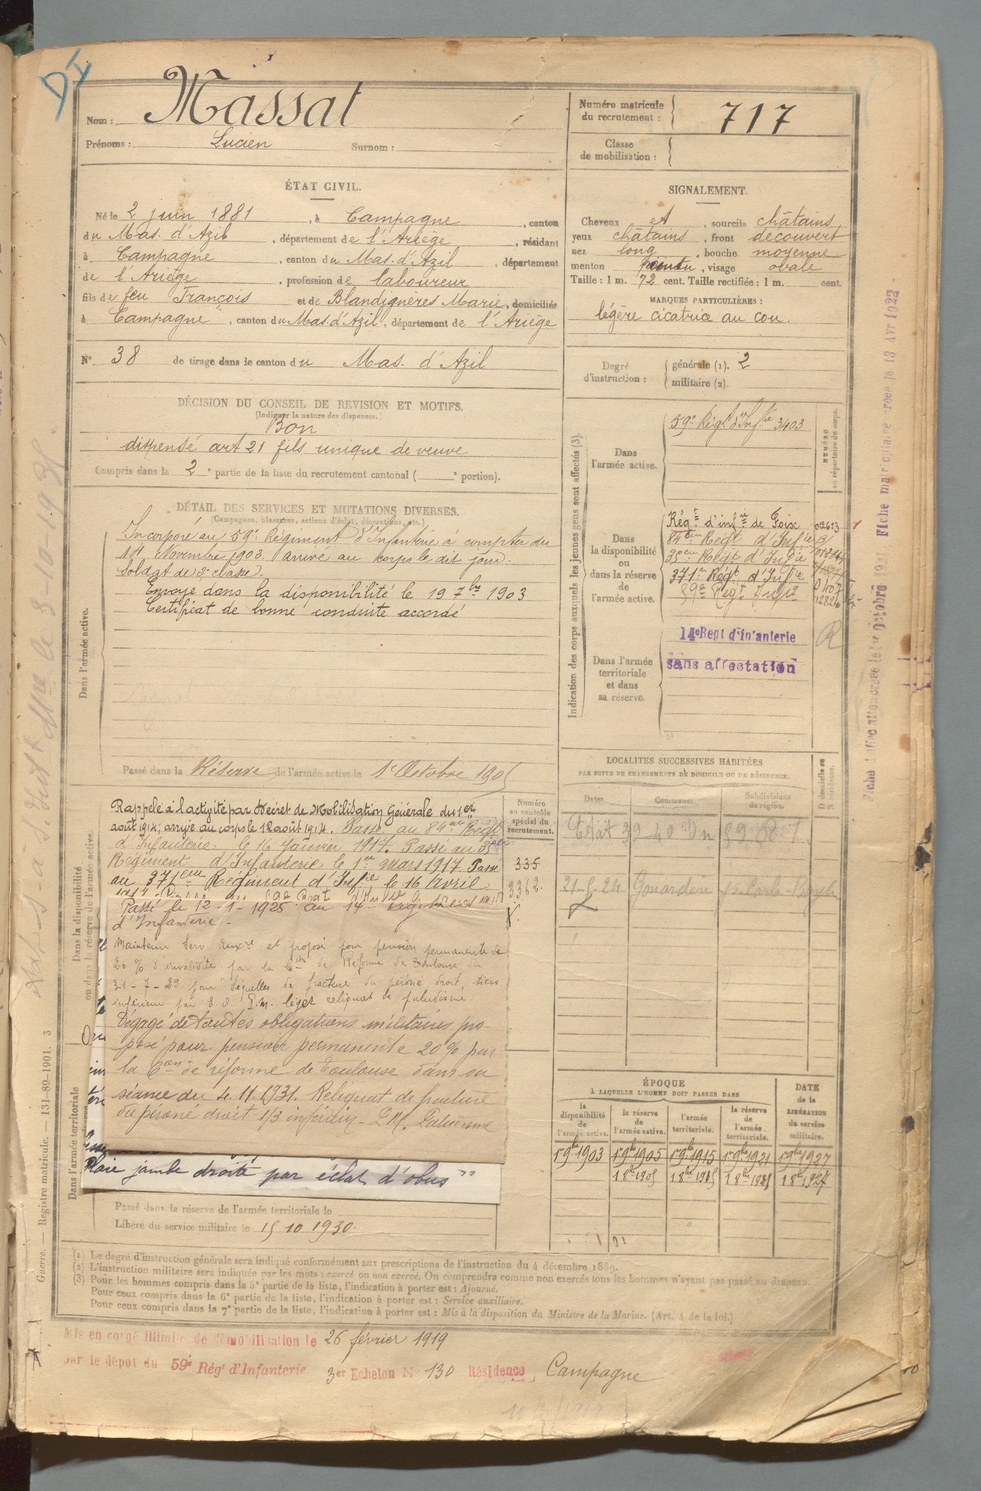 DI
Nom : Massat
Prénoms : Lucien Surnom :
Numéro matricule du recrutement : 717
Classe de mobilisation :
ÉTAT CIVIL.
Né le 2 juin 1881, à Campagne, canton
du Mas. d'Azil, département de l'Ariège, résidant
à Campagne, canton du Mas. d'Azil, département
de l'Ariège, profession de laboureur
fils de feu François et de Blandignères Marie, domiciliés
à Campagne, canton du Mas. d'Azil, département de l'Ariège
N° 38 de tirage dans le canton du Mas. d'Azil
SIGNALEMENT.
Cheveux et, sourcils châtains
yeux châtains, front découvert
nez long, bouche moyenne
menton, visage ovale
Taille : 1 m. 72 cent. Taille rectifiée : 1 m. cent.
MARQUES PARTICULIÈRES :
légère cicatrice au cou.
Degré d'instruction : générale (1). 2
militaire (2).
DÉCISION DU CONSEIL DE REVISION ET MOTIFS.
(Indiquer la nature des dispenses.)
Bon
dispensé art 21 fils unique de veuve
Compris dans la 2e partie de la liste du recrutement cantonal ( e portion).
DÉTAIL DES SERVICES ET MUTATIONS DIVERSES.
(Campagnes, blessures, actions d'éclat, décorations, etc.)
Dans l'armée active.
Incorporé au 59e Régiment d'Infanterie à compter du
Novembre 1903. arrivé au corps le dit jour.
soldat de classe.
Envoyé dans la disponibilité le 19 7bre 1903
Certificat de bonne conduite accordé
Passé dans la Réserve de l'armée active le 1er Octobre 190
Indication des corps auxquels les jeunes gens sont affectés (3).
NUMÉRO au répertoire du corps.
Dans l'armée active.
59e Régt d'Infie 3403
Dans la disponibilité ou dans la réserve de l'armée active.
Régt d'infie de Foix
84eme Regt d'Infie
Regt d'Infie
371e Régt d'Infie
59e Regt Infie
14e Regt d'infanterie
Dans l'armée territoriale et dans sa réserve.
sans affectation
R
LOCALITÉS SUCCESSIVES HABITÉES
PAR SUITE DE CHANGEMENTS DE DOMICILE OU DE RÉSIDENCE.
Dates. Communes. Subdivisions de région. D domicile ou R résidence.
Dans la disponibilité ou dans la réserve de l'armée active.
Numéro au contrôle spécial du recrutement.
335
3362
Rappelé à l'activité par Décret de Mobilisation Générale du 1er
août 1914; arrivé au corps le 12 août 1914. Passé au 84eme Regt
d'Infanterie le 16 Janvier 1917. Passé au
Régiment d'Infanterie le 1er mars 1917 Passé
au 371eme Régiment d'Infie le 16 Avril
Passé le 12-1-1925 au 14e régiment
d'Infanterie
Maintenu Serv. Auxre et proposé pour pension permanente de
20 % d'invalidité par la Con de Réforme de Toulouse du
31-7-29 pour séquelles de fracture du péroné droit, tiers
inférieur léger reliquat de paludisme
Dégagé de toutes obligations militaires pro-
posé pour pension permanente 20% par
la Con de réforme de Toulouse dans sa
séance du 4.11.1931. Reliquat de fracture
du péroné droit 1/3 inférieur. Paludisme
Plaie jambe droite par éclat d'obus "
Dans l'armée territoriale
Passé dans la réserve de l'armée territoriale le
Libéré du service militaire le 15 10 1930.
ÉPOQUE
À LAQUELLE L'HOMME DOIT PASSER DANS
la disponibilité de l'armée active. la réserve de l'armée active. l'armée territoriale. la réserve de l'armée territoriale. DATE de la LIBÉRATION du service militaire.
19bre1903 19bre1905 19bre1915 19bre1921 19bre1927
(1) Le degré d'instruction générale sera indiqué conformément aux prescriptions de l'instruction du 4 décembre 1889.
(2) L'instruction militaire sera indiquée par les mots : exercé ou non exercé. On comprendra comme non exercés tous les hommes n'ayant pas passé au drapeau.
(3) Pour les hommes compris dans la 5e partie de la liste, l'indication à porter est : Ajourné.
Pour ceux compris dans la 6e partie de la liste, l'indication à porter est : Service auxiliaire.
Pour ceux compris dans la 7e partie de la liste, l'indication à porter est : Mis à la disposition du Ministre de la Marine. (Art. 4 de la loi.)
Mis en congé illimité de démobilisation le 26 février 1919
par le dépôt du 59e Régt d'Infanterie 3er Echelon N° 130 Résidence Campagne
Guerre. — Registre matricule. 131-89-1901. 3